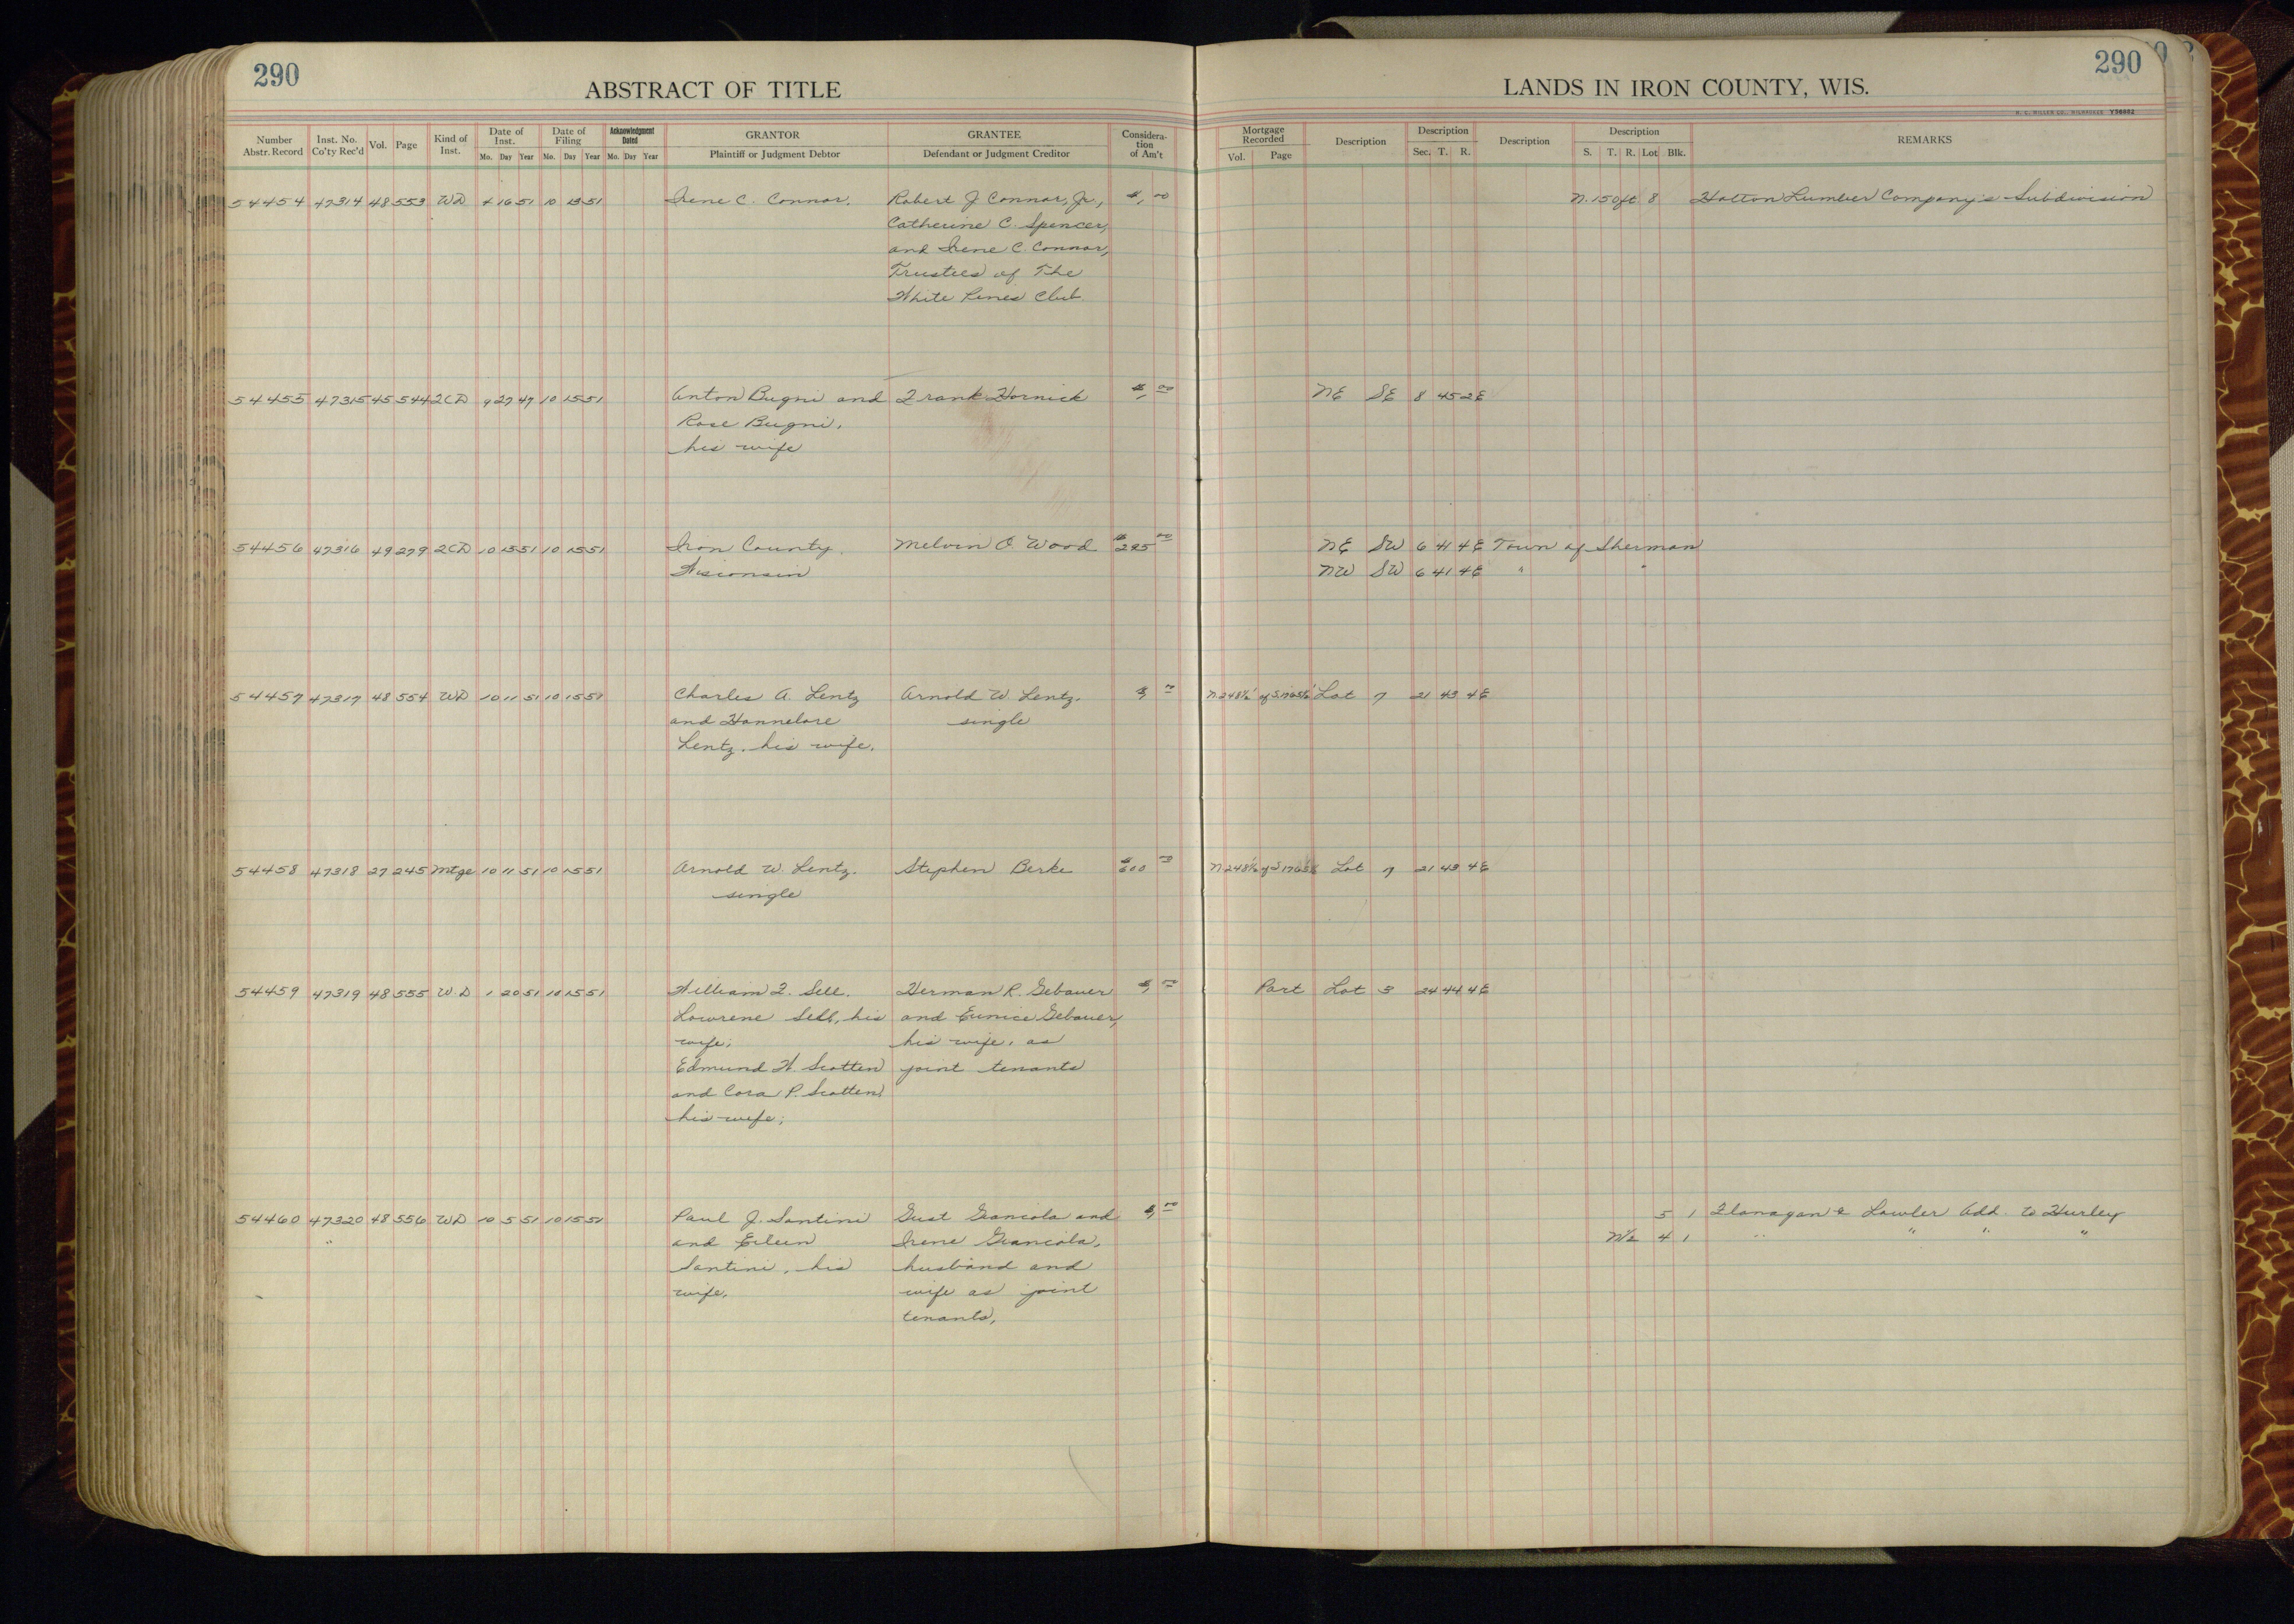 290
ABSTRACT OF TITLE
LANDS IN IRON COUNTY, WIS.
290
H. C. MILLER CO., MILWAUKEE Y56882
Number Abstr. Record Inst. No. Co'ty Rec'd Vol. Page Kind of Inst. Date of Inst. Mo. Day Year Date of Filing Mo. Day Year Acknowledgment Dated Mo. Day Year GRANTOR Plaintiff or Judgment Debtor GRANTEE Defendant or Judgment Creditor Considera- tion of Am't Mortgage Recorded Vol. Page Description Description Sec. T. R. Description Description S. T. R. Lot Blk. REMARKS
54454 47314 48 553 WD 16 51 10 51 Irene C. Connor. Robert J Connor, Jr., $1.00 N.150ft 8 Hatton Lumber Company's Subdivision
Catherine C. Spencer,
and Irene C. Connor,
Trustees of The
White Pines Club
54455 47315 45 544 2CD 9 27 47 10 15 51 Anton Bugni and Frank Hornick $1.00 NE SE 8 45 2E
Rose Bugni,
his wife
54456 47316 49 279 2CD 10 15 51 10 15 51 Iron County, Melvin O. Wood $295.00 NE SW 6 41 4E Town of Sherman
Wisconsin NW SW 6 41 4E " "
54457 47317 48 554 WD 10 11 51 10 15 51 Charles A. Lentz Arnold W. Lentz, $1.00 Lot 7 21 43 4E
and Hannelore single
Lentz, his wife.
54458 47318 27 245 Mtge 10 11 51 10 15 51 Arnold W. Lentz, Stephen Berke $600.00 Lot 7 21 43 4E
single
54459 47319 48 555 W.D 1 20 51 10 15 51 William F. Sell. Herman R. Gebauer $1.00 Part Lot 3 24 44 4E
Lowrene Sell, his and Eunice Gebauer,
wife; his wife, as
Edmund H. Scotten joint tenants
and Cora P. Scotten,
his wife;
54460 47320 48 556 WD 10 5 51 10 15 51 Paul J. Santini Gust Giancola and $1.00 5 1 Flanagan & Lawler Add. to Hurley
" and Eileen Irene Giancola, N½ 4 1 " " " "
Santini, his husband and
wife, wife as joint
tenants,